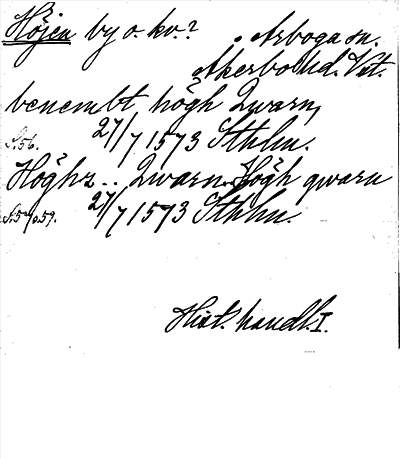 Höjen by o. kv.? Arboga sn.
Åkerbo hd. Vst.
benembt högh Qwarn,
S.56. 27/7 1573 Sthlm.
Höghz.. Qwarn. Högh qwarn
27/7 1573 Sthlm.
Hist. handl. I.